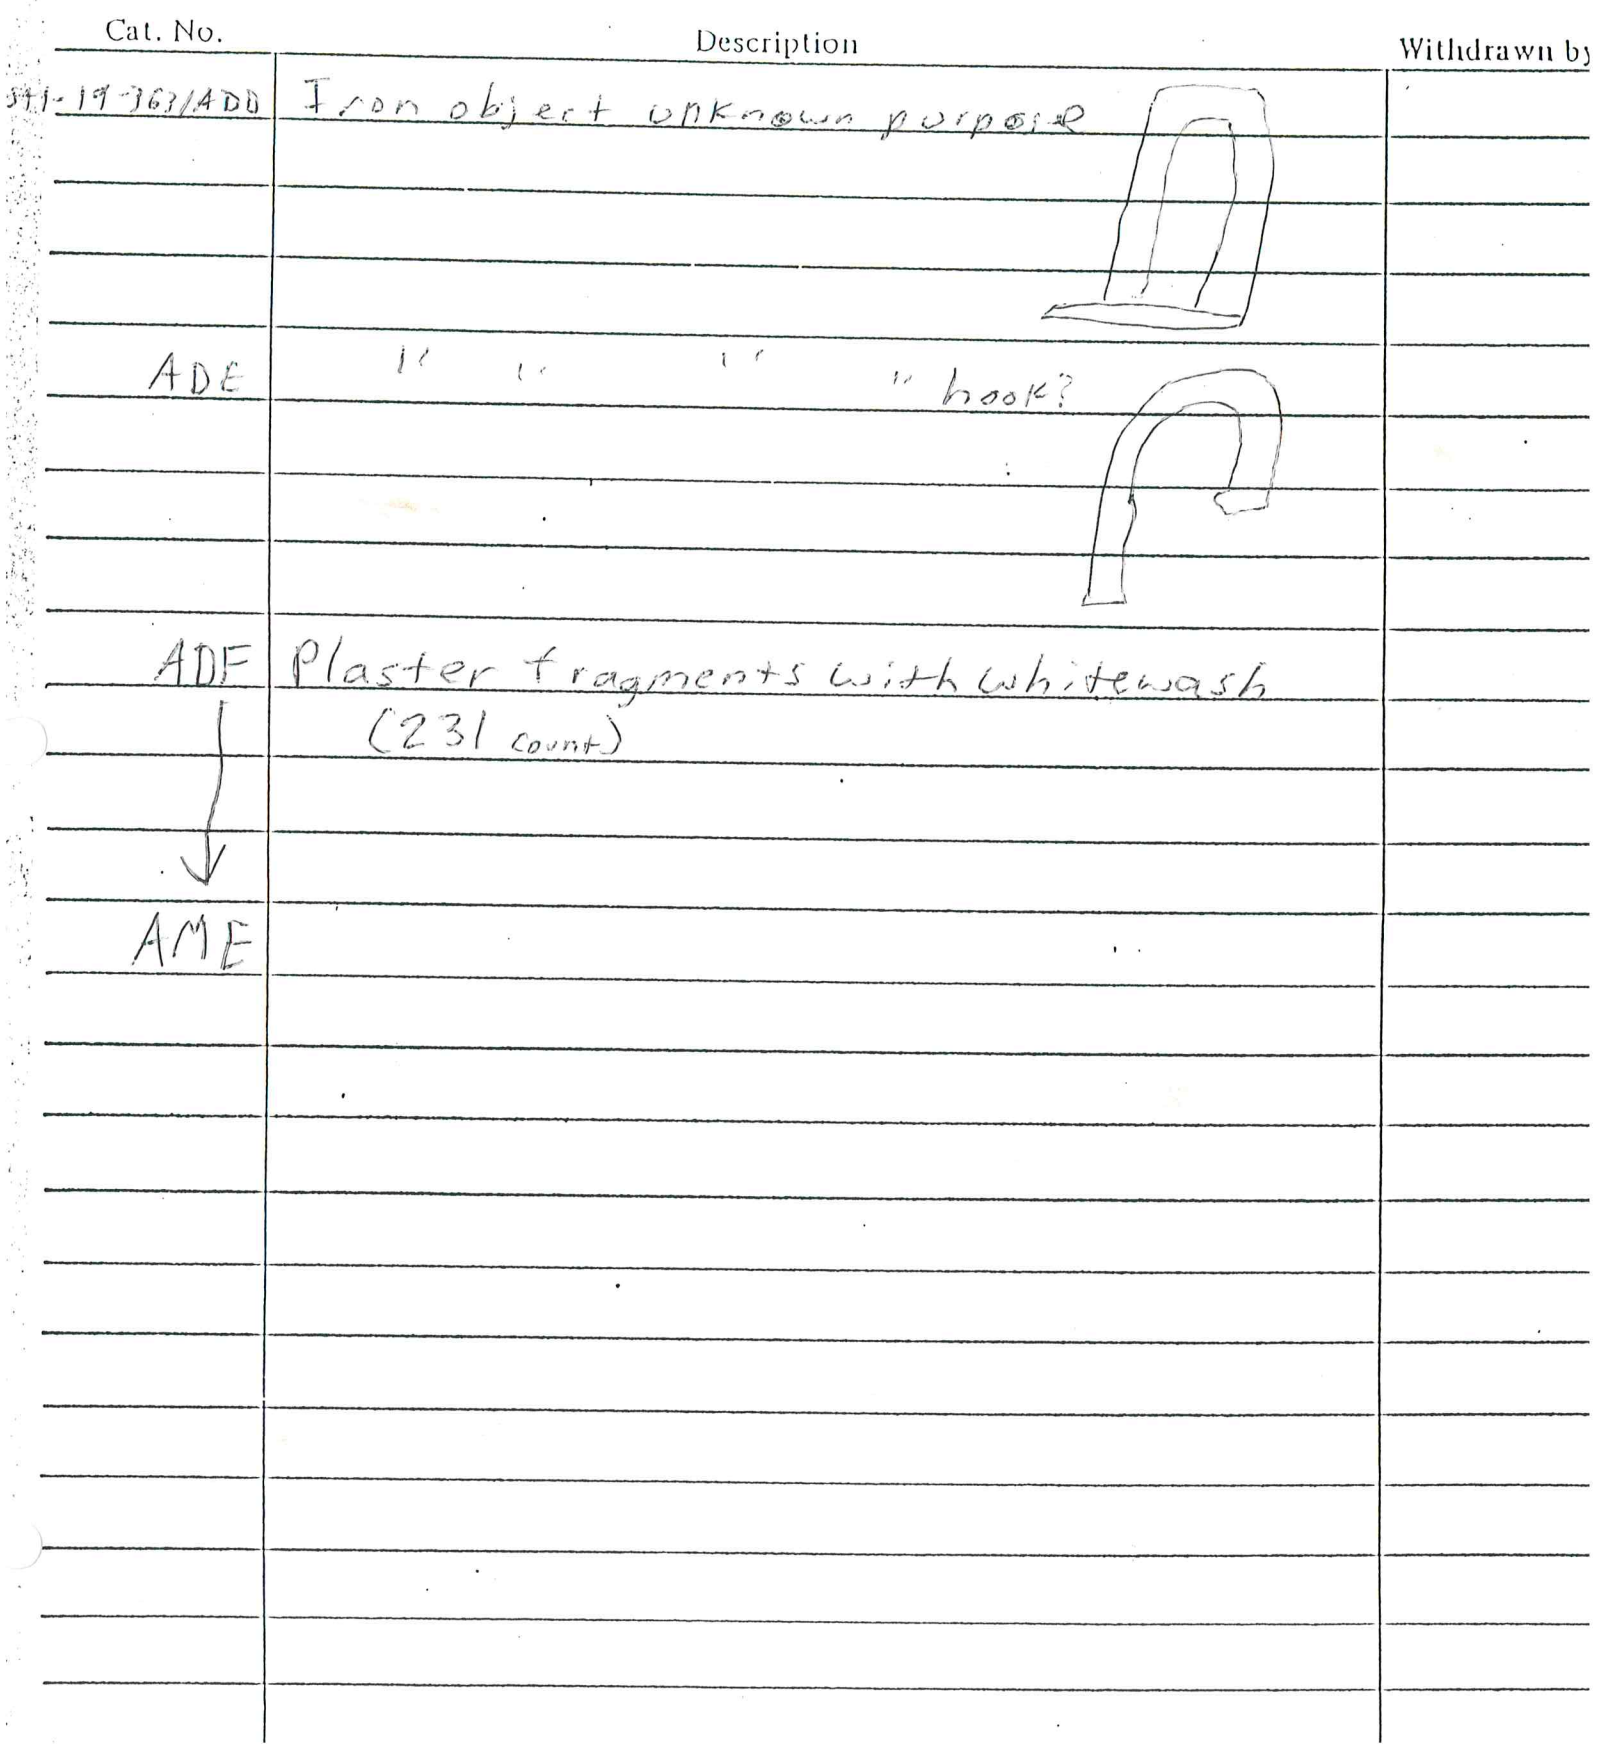 Cat. No. Description Withdrawn by
-19-363/ADD Iron object unknown purpose
ADE " " " " hook?
ADF Plaster fragments with whitewash
(231 count)
AME